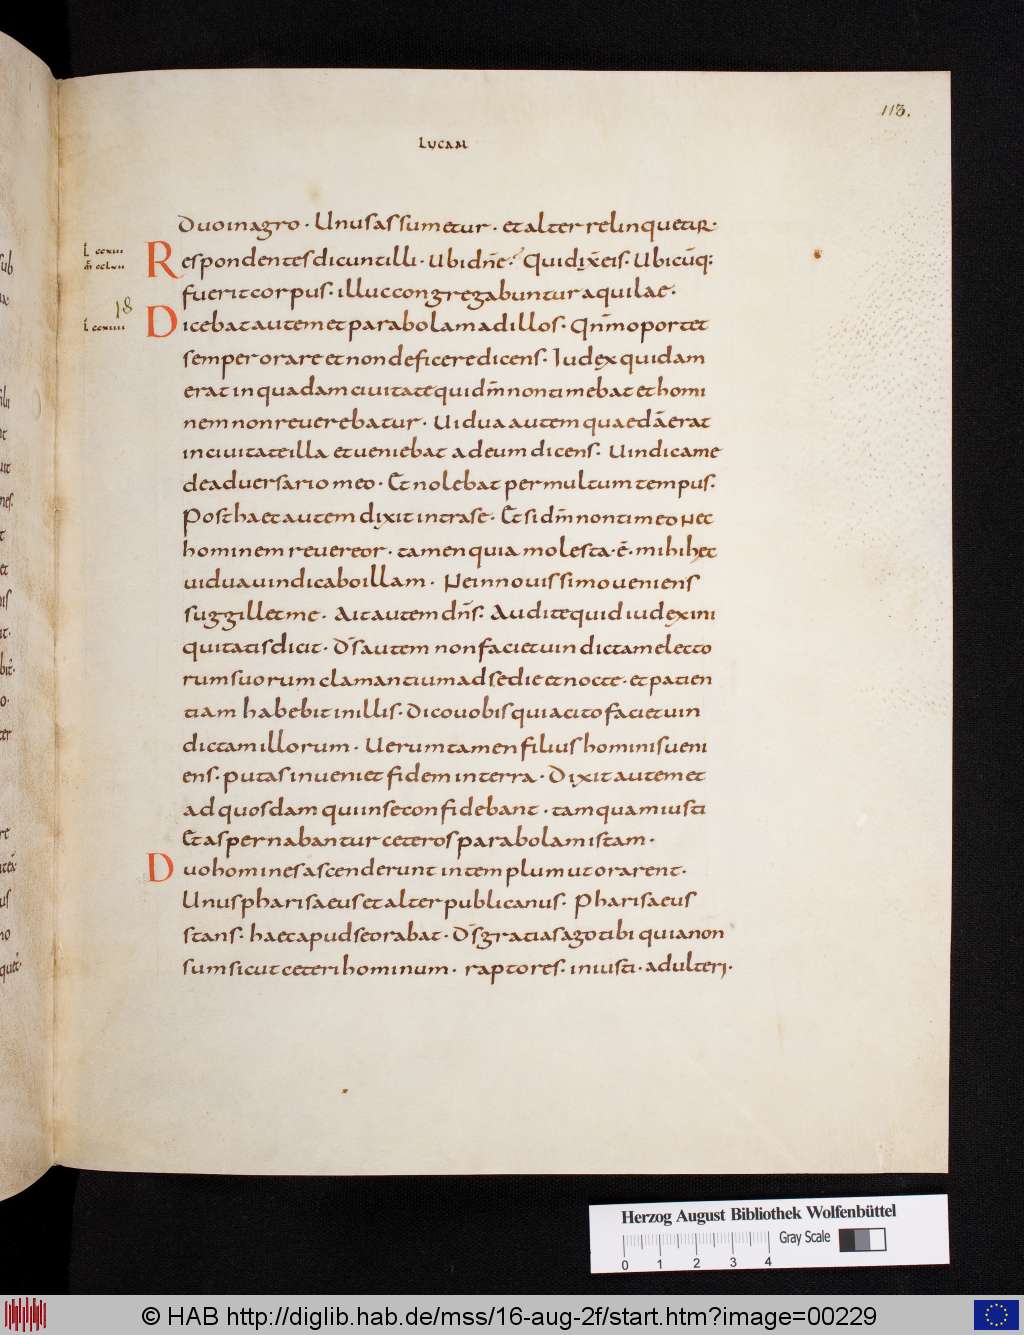 113.
LUCAM
Duo in agro · Unus assumetur · et alter relinquetur·
L ccxiii
m̄ cclvii
Respondentes dicunt illi · Ubi dn̄e? Qui dix̄ eis. Ubicūq:
fuerit corpus· illuc congregabuntur aquilae·
18
L ccxiiii
Dicebat autem et parabolam ad illos· Qnm̄ oportet
semper orare et non deficere dicens· Iudex quidam
erat in quadam civitate qui dm̄ non timebat et homi
nem non reverebatur · Uidua autem quaedā erat
in civitate illa et veniebat ad eum dicens· Uindica me
de adversario meo · Et nolebat per multum tempus·
Post haec autem dixit intra se · Et si dm̄ non timeo Nec
hominem revereor · tamen quia molesta · ē · mihi hec
vidua vindicabo illam · Ne in novissimo veniens
suggillet me · Ait autem dn̄s· Audite quid iudex ini
quitatis dicit · Ds̄ autem non faciet vindictam electo
rum suorum clamantium ad se die et nocte · et patien
tiam habebit in illis· Dico vobis quia cito faciet vin
dictam illorum · Uerumtamen filius hominis veni
ens· putas inveniet fidem in terra · Dixit autem et
ad quosdam qui in se confidebant · tamquam iusti
Et aspernabantur ceteros parabolam istam ·
Duo homines ascenderunt in templum ut orarent·
Unus pharisaeus et alter publicanus· Pharisaeus
stans· haec apud se orabat· Ds̄ gratias ago tibi quia non
sum sicut ceteri hominum · raptores· iniusti · adulteri·
Herzog August Bibliothek Wolfenbüttel
Gray Scale
0 1 2 3 4
© HAB http://diglib.hab.de/mss/16-aug-2f/start.htm?image=00229